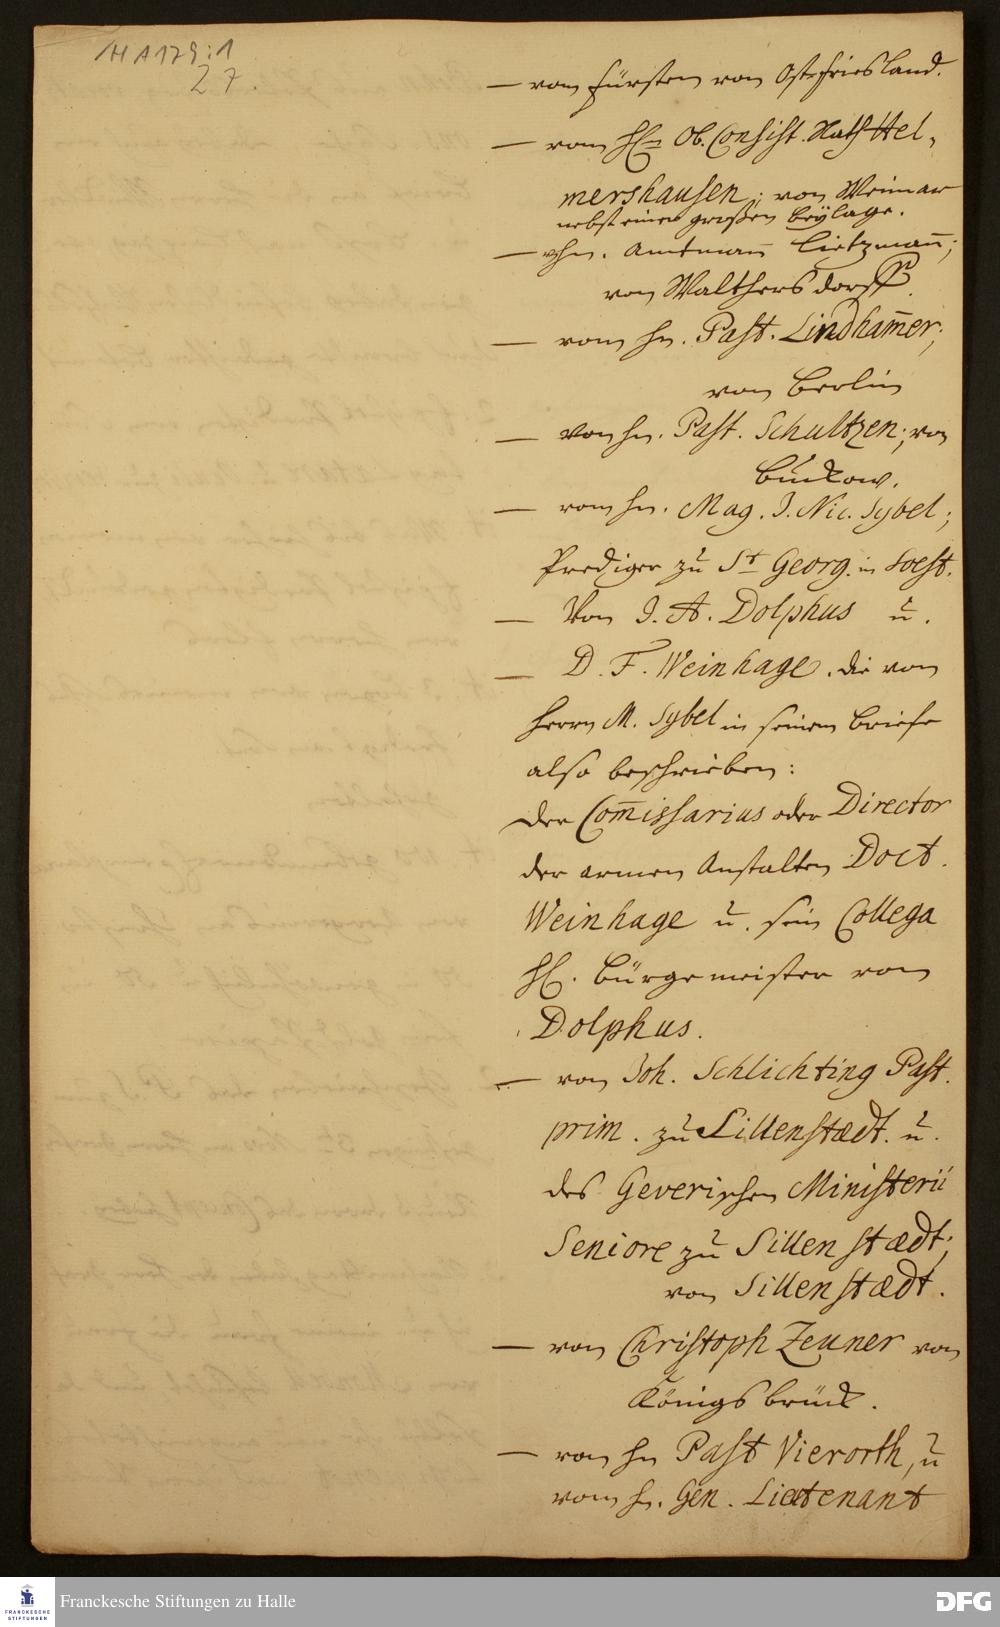 H A 179:1
27.
— vom Fürsten von Ostfriesland.
— vom H. Ob. Consist. Rath Hel-
mershausen; von Weimar
nebst einer großen Beylage.
— v. Hn. Amtmann Lietzmann;
von Walthersdorff.
— vom Hn. Past. Lindham̄er;
von Berlin
— von Hn. Past. Schultzen; von
Buckow.
— vom Hn. Mag. J. Nic. Sybel;
Prediger zu St. Georg. in Soest.
— Von J. A. Dolphus u.
— D. F. Weinhage. die von
Herrn M. Sybel in seinem Briefe
also beschrieben:
Der Com̄issarius oder Director
der armen Anstalten Doct.
Weinhage u. sein Collega
H. Bürgemeister von
Dolphus.
— von Joh. Schlichting Past.
prim. zu Sillenstædt. u.
des Geverischen Ministerii
Seniore zu Sillenstædt;
von Sillenstædt.
— von Christoph Zeuner von
Königsbrück.
— von Hn Past Vierorth, u
vom H. Gen. Lieutenant
Franckesche Stiftungen zu Halle
FRANCKESCHE
STIFTUNGEN
DFG